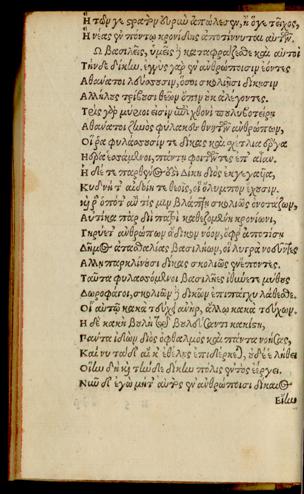 Ἢ τῶν γε στρατὸν εὐρὺν ἀπώλεσεν, ἢ ὅγε τεῖχος,
Ἢ νέας ἐν πόντῳ κρονίδης ἀποτίννυται αὐτῶν.
Ω βασιλεῖς, ὑμεῖς ἢ καταφράζεσθε καὶ αὐτοὶ
Τήνδε δίκην, ἐγγὺς γὰρ ἐν ἀνθρώποισιν ἐόντες
Αθάνατοι λεύσσουσιν, ὅσοι σκολιῇσι δίκῃσιν
Αλλήλους τρίβουσι θεῶν ὄπιν οὐκ ἀλέγοντες.
Τρὶς γὰρ μύριοι εἰσὶν ἐπὶ χθονὶ πολυβοτείρῃ
Αθάνατοι ζηνὸς φύλακες θνητῶν ἀνθρώπων,
Οἵ ῥα φυλάσσουσίν τε δίκας καὶ σχέτλια ἔργα
Ηέρα ἑσσάμενοι, πάντη φοιτῶντες ἐπ' αἶαν.
Η δέ τε παρθένος ἐστὶ Δίκη διὸς ἐκγεγαυῖα,
Κυδνή τ' αἰδοίη τε θεοῖς, οἳ ὄλυμπον ἔχουσιν.
Καί ῥ' ὁπότ' ἄν τίς μιν βλάπτῃ σκολιῶς ὀνοτάζων,
Αὐτίκα πὰρ διῒ πατρὶ καθεζομένη κρονίωνι,
Γηρύετ' ἀνθρώπων ἄδικον νόον, ὄφρ' ἀποτίσῃ
Δῆμος ἀτασθαλίας βασιλήων, οἳ λυγρὰ νοεῦντες
Αλλῃ παρκλίνουσι δίκας σκολιῶς ἐνέποντες.
Ταῦτα φυλασσόμενοι βασιλῆες ἰθύνετε μύθους
Δωροφάγοι, σκολιῶν ἢ δικῶν ἐπιπάγχυ λάθεσθε.
Οἷ αὐτῷ κακὰ τεύχει ἀνὴρ, ἄλλῳ κακὰ τεύχων.
Η δὲ κακὴ βουλὴ τῷ βουλεύσαντι κακίστη,
Πάντα ἰδὼν διὸς ὀφθαλμὸς καὶ πάντα νοήσας,
Καί νυ τάδ' αἴ κ' ἐθέλῃς ἐπιδέρκετ', οὐδέ ἑ λήθει
Οἵην δὴ καὶ τήνδε δίκην πόλις ἐντὸς ἐέργει.
Νῦν δὴ ἐγὼ μήτ' αὐτὸς ἐν ἀνθρώποισι δίκαιος
Εἴην